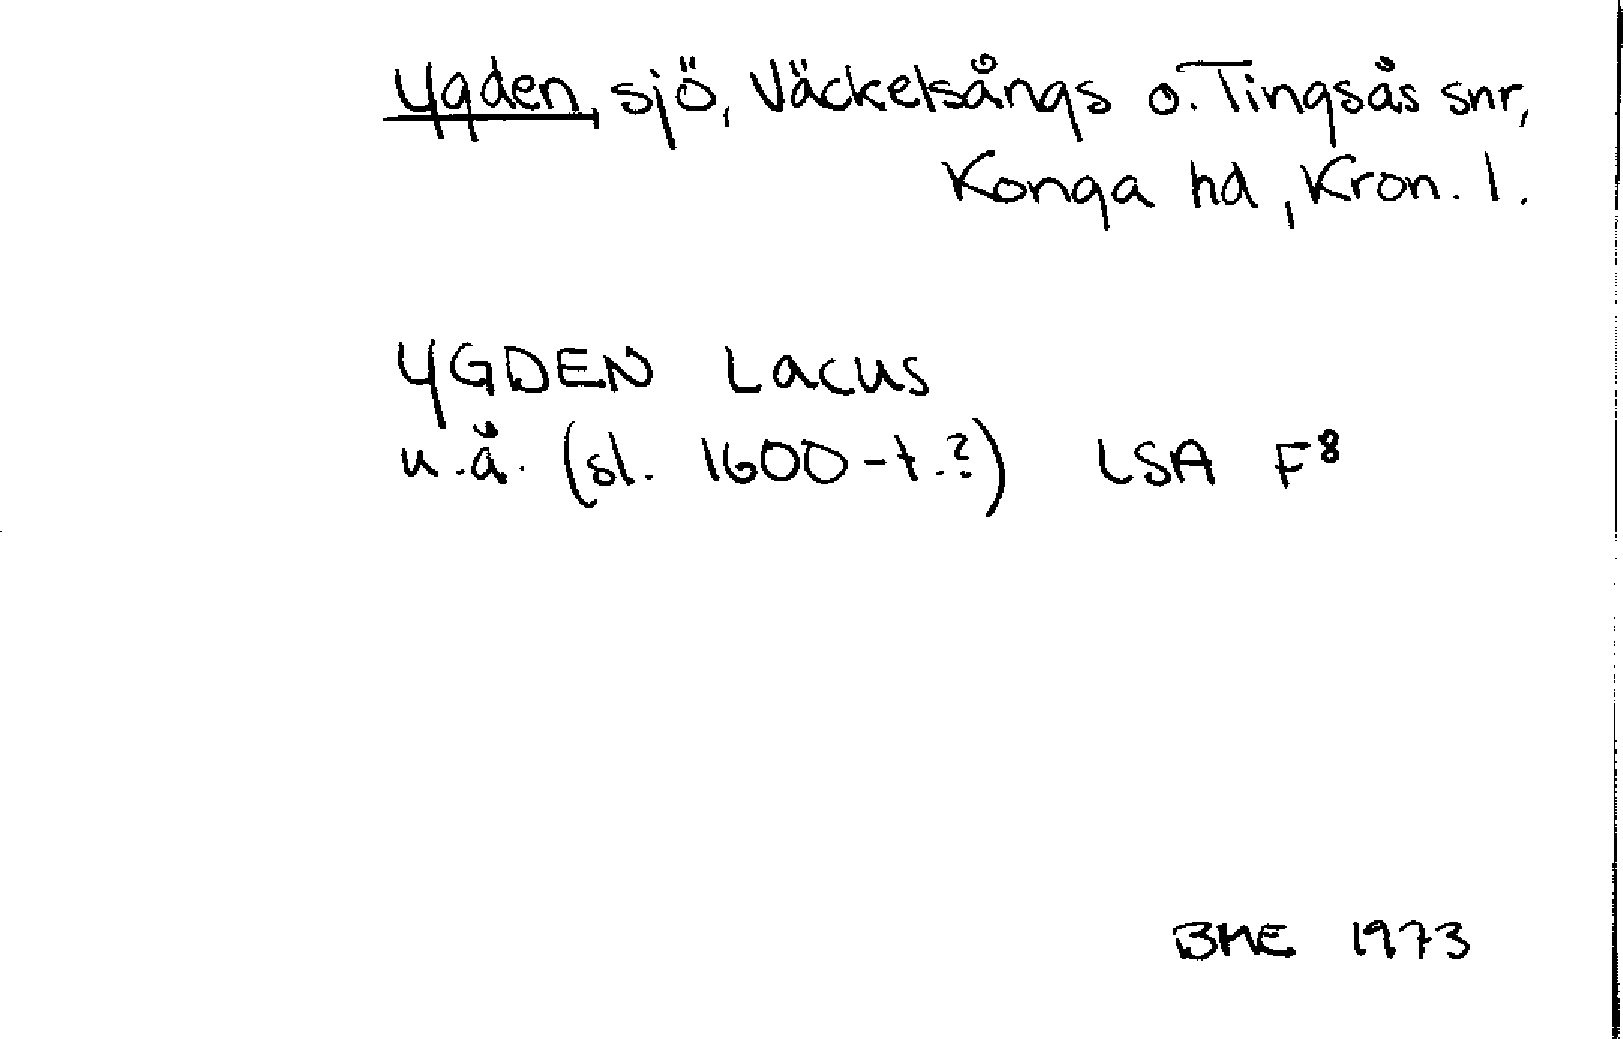 Ygden, sjö, Väckelsångs o. Tingsås snr,
Konga hd, Kron. l.
YGDEN Lacus
u.å. (sl. 1600-t.?) LSA F8
BHE 1973